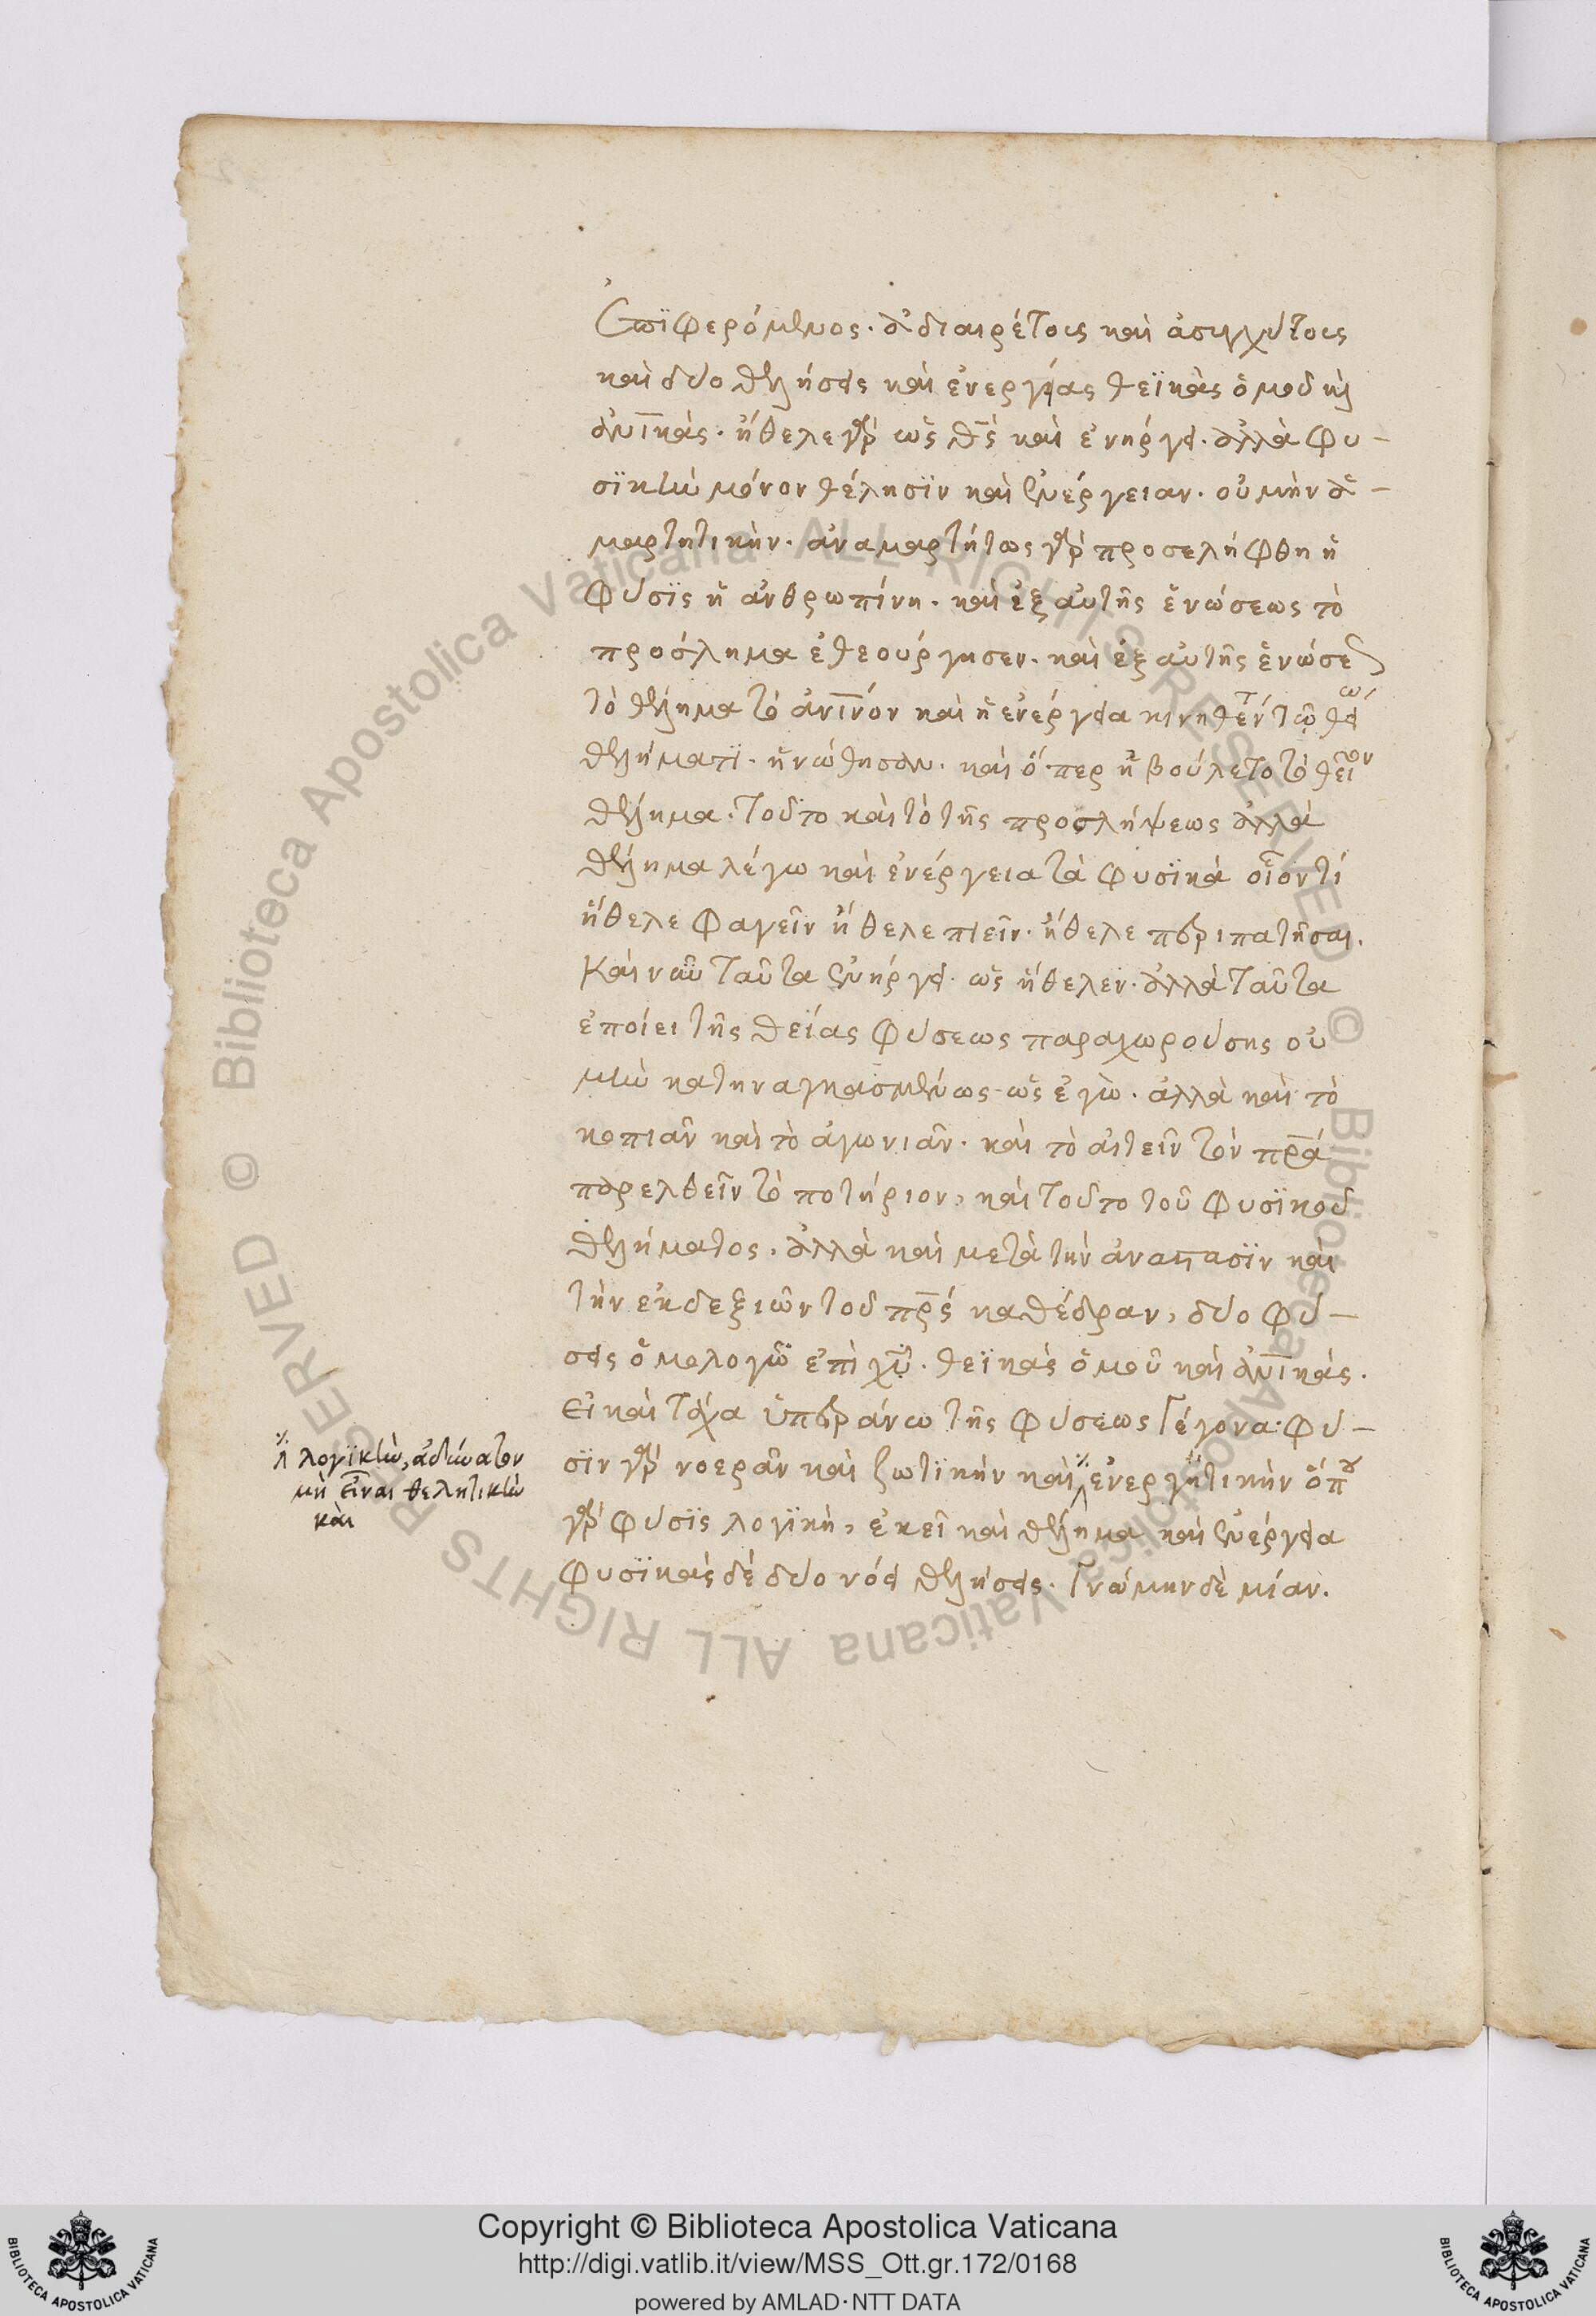 ἐπϊφερόμενος. ἀδιαιρέτοις καὶ ἀσυγχύτοις
καὶ δύο θελήσεις καὶ ἐνεργείας θεϊκὰς ὁμοῦ κỳ
ἀνϊκὰς. ἤθελε γὰρ ὡς θς καὶ ἐνήργει. ἀλλὰ φυ-
σϊκὴν μόνον θέλησϊν καὶ ἐνέργειαν. οὐ μὴν ἁ-
μαρτητικὴν. ἀναμαρτήτως γὰρ προσελήφθη ἡ
φύσϊς ἡ ἀνθρωπίνη. καὶ ἐξ αὐτῆς ἑνώσεως τὸ
πρόσλημα ἐθεούργησεν. καὶ ἐξ αὐτῆς ἑνώσε
τὸ θέλημα τὸ ἀνϊνον καὶ ἡ ἐνέργεια κινηθέντ τῷ θείω
θελήματϊ. ἡνώθησαν. καὶ ὅπερ ἠβούλετο τὸ θεῖον
θέλημα. τοῦτο καὶ τὸ τῆς προσλήψεως ἀλλὰ
θέλημα λέγω καὶ ἐνέργεια τὰ φυσϊκὰ οἷον τί
ἤθελε φαγεῖν ἤθελε πιεῖν. ἤθελε περιπατῆσαι.
καὶ νῦν ταῦτα ἐνήργει ὡς ἤθελεν. ἀλλὰ ταῦτα
ἐποίει τῆς θείας φύσεως παραχωρούσης οὐ
μὴν κατηναγκασμένως ὡς ἐγὼ. ἀλλὰ καὶ τὸ
κοπιᾶν καὶ τὸ ἀγωνιᾶν. καὶ τὸ αἰτεῖν τὸν πρα
παρελθεῖν τὸ ποτήριον, καὶ τοῦτο τοῦ φυσϊκοῦ
θελήματος. ἀλλὰ καὶ μετὰ τὴν ἀνάστασϊν καὶ
τὴν ἐκ δεξιῶν τοῦ πρς καθέδραν, δύο φύ-
σεις ὁμολογῶ ἐπὶ χυ. θεϊκὰς ὁμοῦ καὶ ἀνϊκὰς.
εἰ καὶ τάχα ὑπεράνω τῆς φύσεως γέγονα. φύ-
σϊν γὰρ νοερὰν καὶ ζωτϊκὴν καὶ ἐνεργητικὴν ὅπου
γὰρ φύσϊς λογϊκὴ, ἐκεῖ καὶ θέλημα καὶ ἐνέργεια
φυσϊκὰς δὲ δύο νόει θελήσεις. γνώμην δὲ μίαν.
λογϊκὴν, ἀδύνατον
μὴ εἶναι θελητικὴν
καὶ
Copyright © Biblioteca Apostolica Vaticana
http://digi.vatlib.it/view/MSS_Ott.gr.172/0168
powered by AMLAD·NTT DATA
BIBLIOTECA APOSTOLICA VATICANA
BIBLIOTECA APOSTOLICA VATICANA
© Biblioteca Apostolica Vaticana ALL RIGHTS RESERVED © Biblioteca Apostolica Vaticana ALL RIGHTS RESERVED